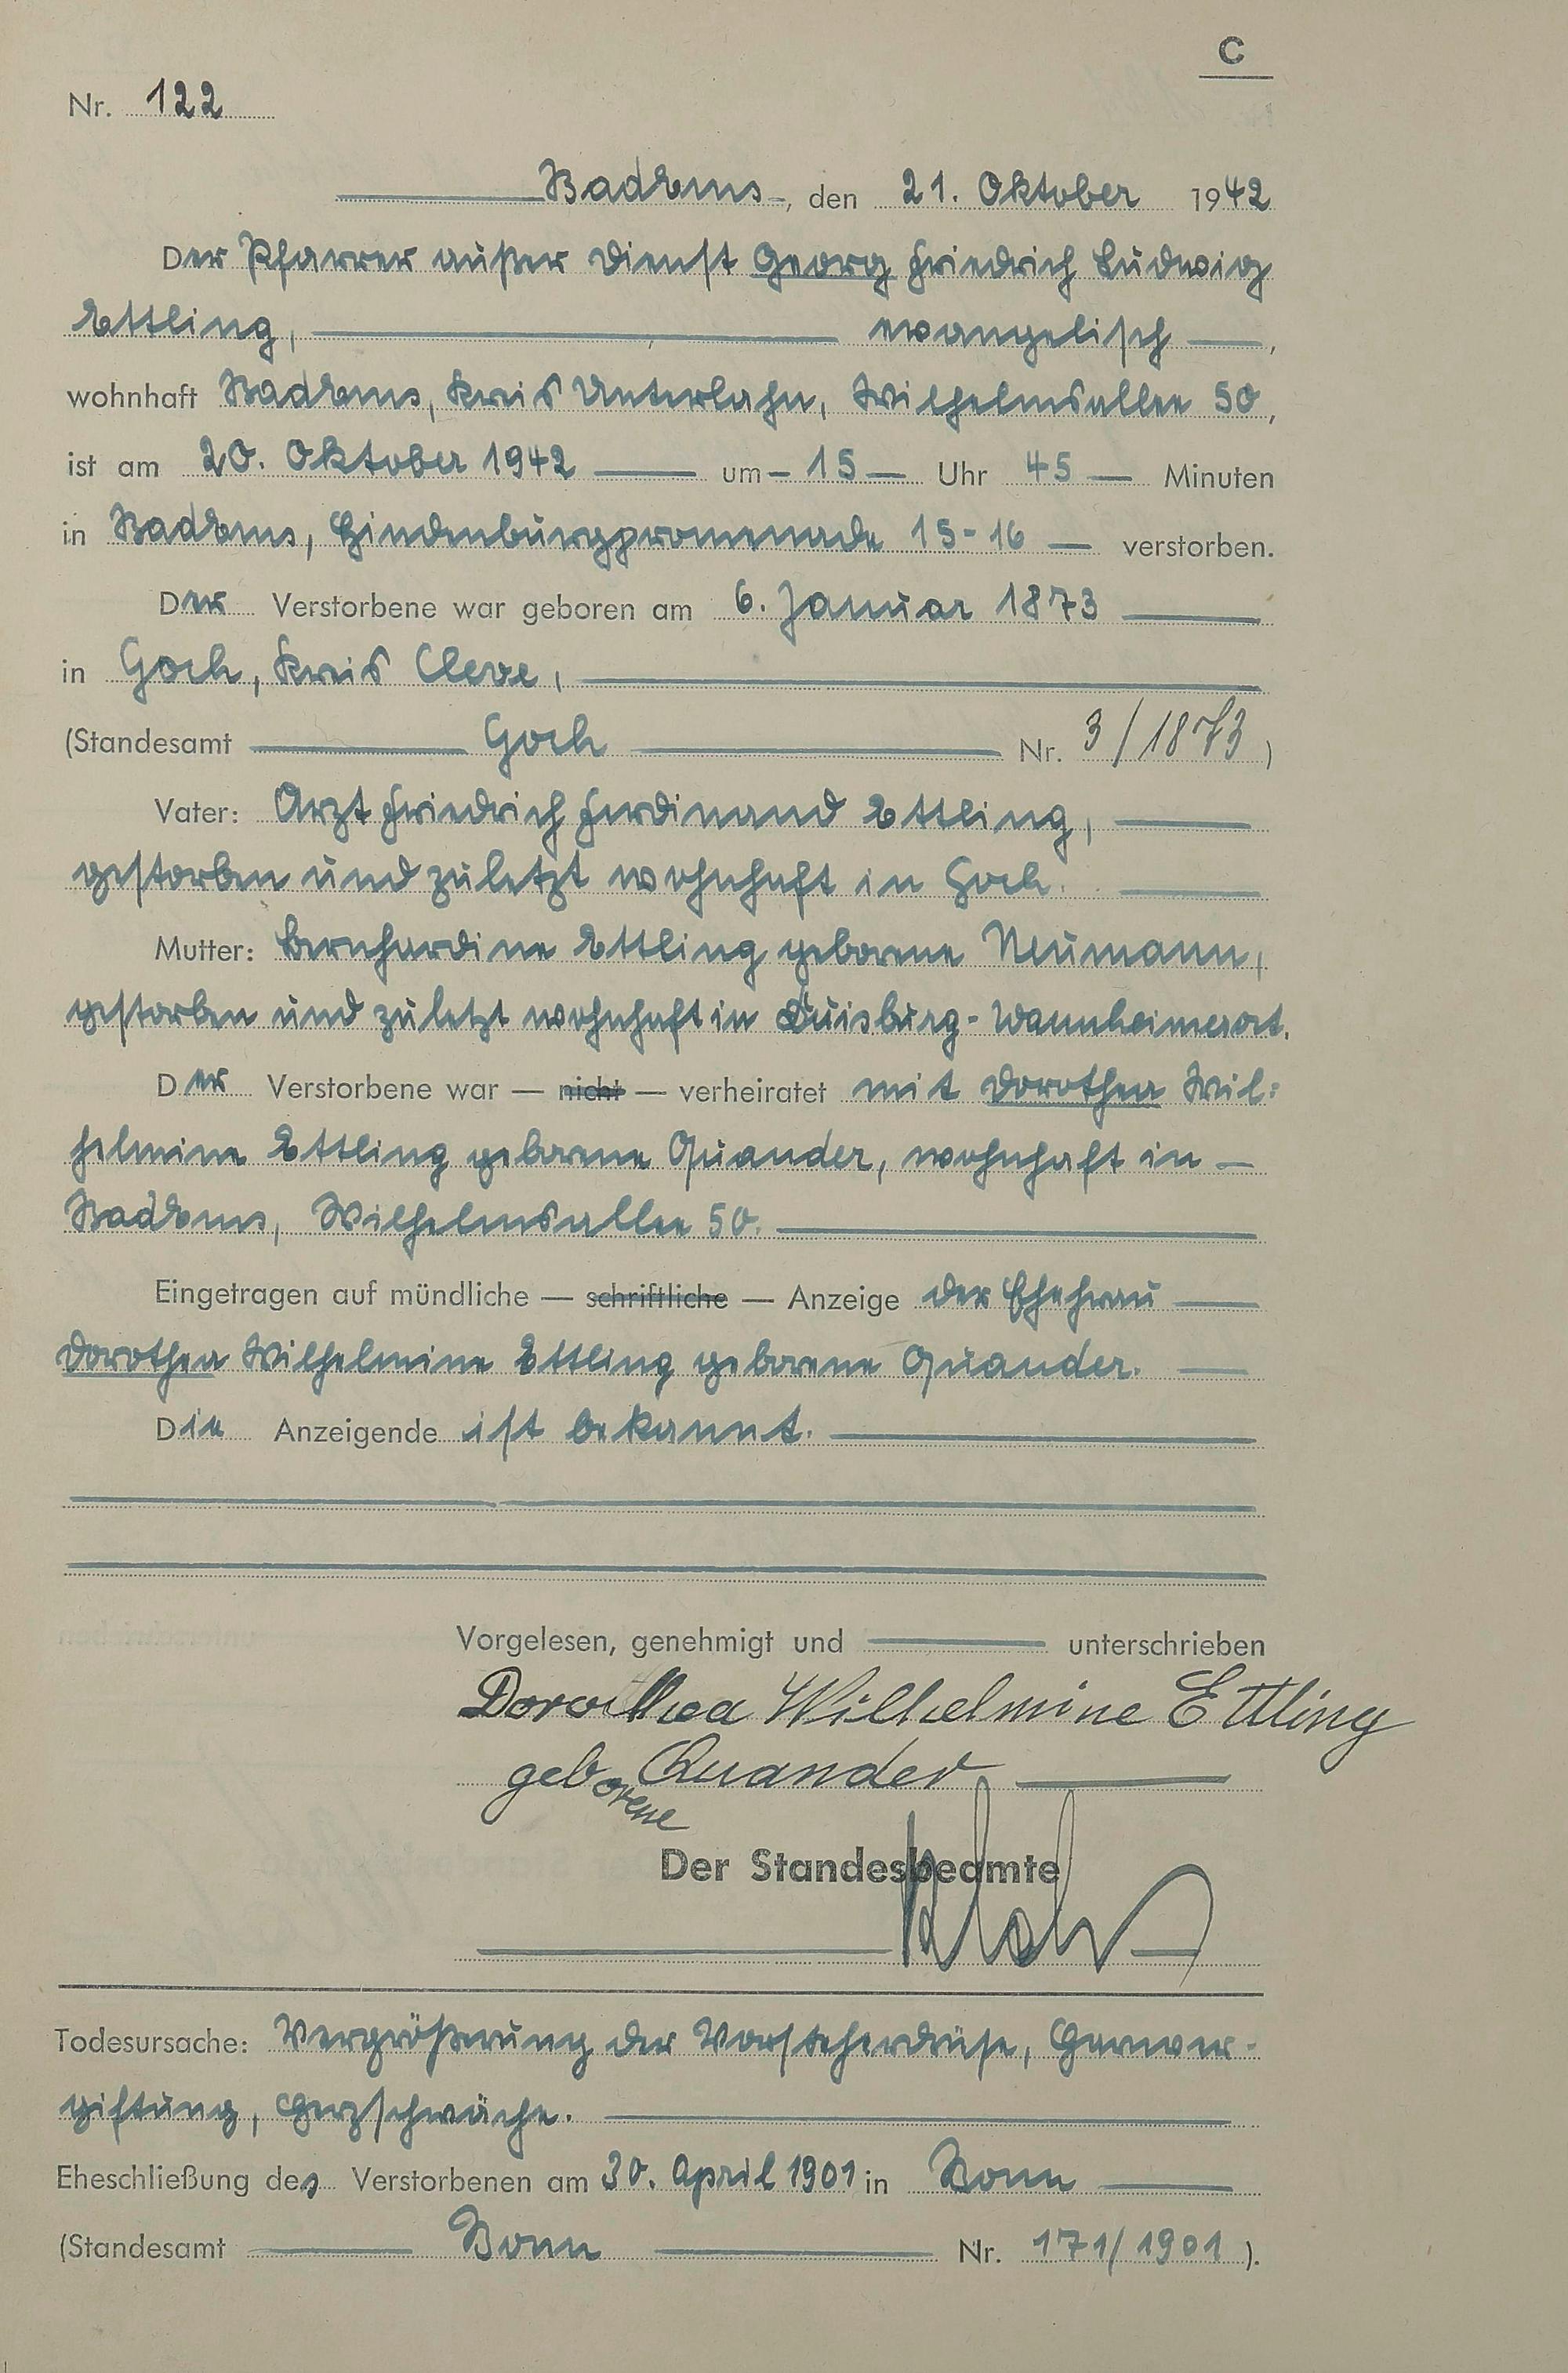 C
Nr. 122
Bad Ems, den 21. Oktober 1942
Der Pfarrer außer Dienst Georg Friedrich Ludwig
Ettling, evangelisch,
wohnhaft Bad Ems, Kreis Unterlahn, Wilhelmsallee 50,
ist am 20. Oktober 1942 um 15 Uhr 45 Minuten
in Bad Ems, Hindenburgpromenade 15-16 verstorben.
Der Verstorbene war geboren am 6. Januar 1873
in Goch, Kreis Cleve,
(Standesamt Goch Nr. 3/1873)
Vater: Arzt Friedrich Ferdinand Ettling,
gestorben und zuletzt wohnhaft in Goch.
Mutter: Bernhardine Ettling geborene Neumann,
gestorben und zuletzt wohnhaft in Duisburg-Wannheimerort.
Der Verstorbene war — nicht — verheiratet mit Dorothea Wil:
helmine Ettling geborene Quander, wohnhaft in
Bad Ems, Wilhelmsallee 50.
Eingetragen auf mündliche — schriftliche — Anzeige der Ehefrau
Dorothea Wilhelmine Ettling geborene Quander.
Die Anzeigende ist bekannt.
Vorgelesen, genehmigt und unterschrieben
Dorothea Wilhelmine Ettling
geborene Quander
Der Standesbeamte
Todesursache: Vergrößerung der Vorsteherdrüse, Harnver-
giftung, Herzschwäche.
Eheschließung des Verstorbenen am 30. April 1901 in Bonn
(Standesamt Bonn Nr. 171/1901).